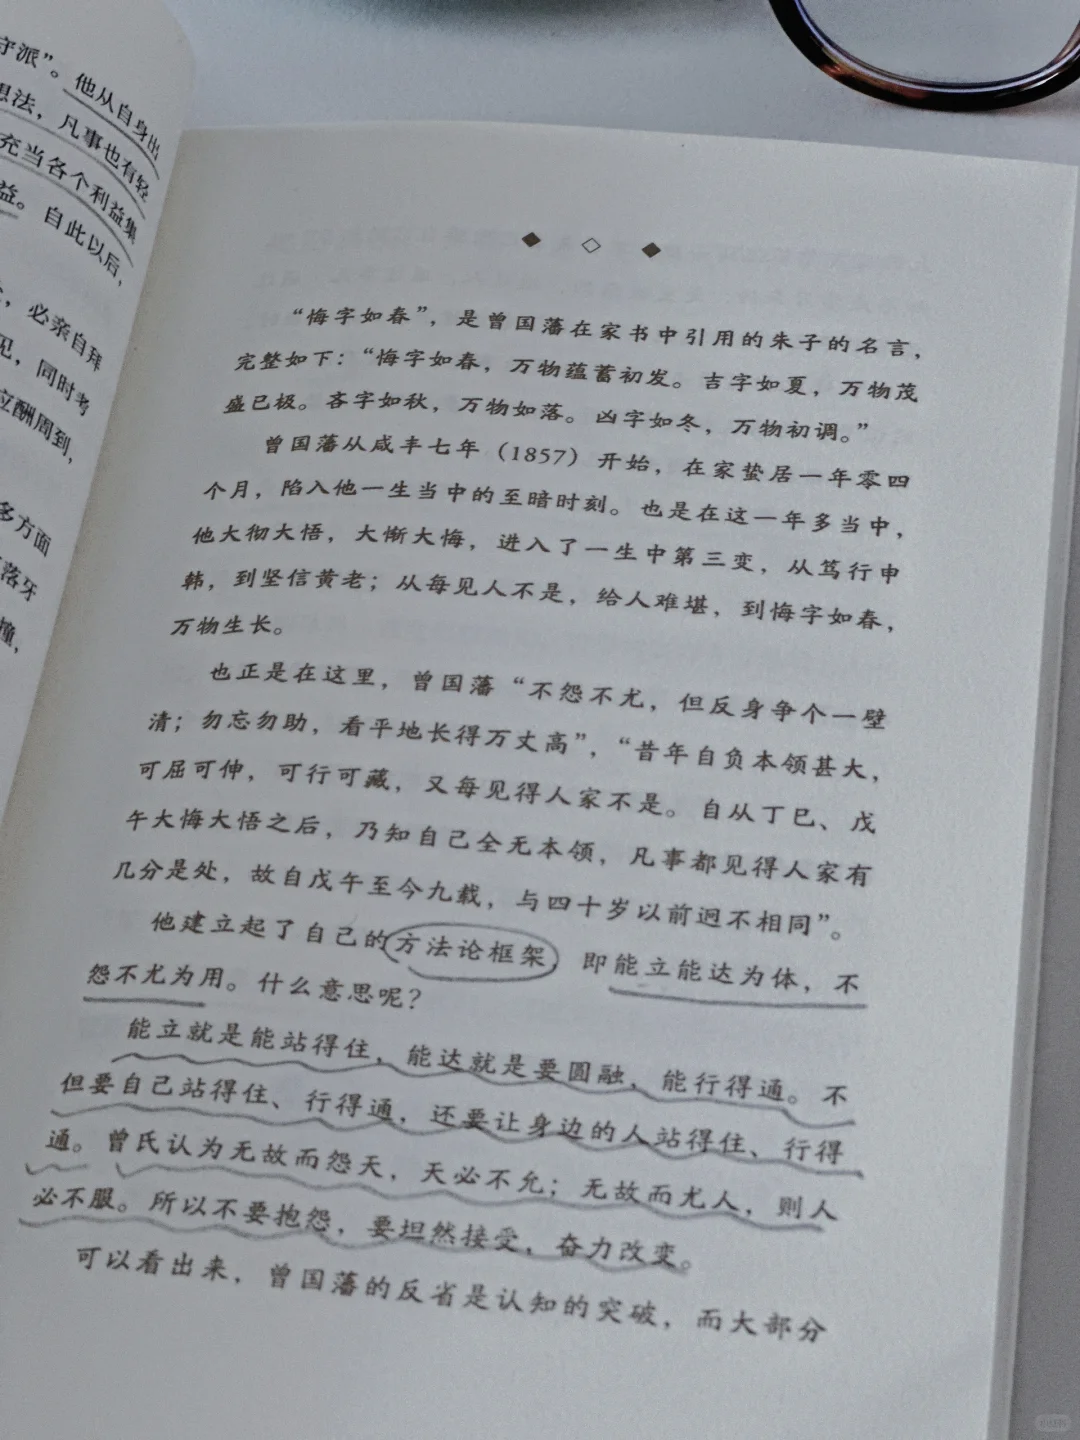 守派”。他从自身出
想法，凡事也有轻
充当各个利益集
益。自此以后，
，必亲自拜
见，同时考
应酬周到，
多方面
落牙
撞，
“悔字如春”，是曾国藩在家书中引用的朱子的名言，
完整如下：“悔字如春，万物蕴蓄初发。吉字如夏，万物茂
盛已极。吝字如秋，万物如落。凶字如冬，万物初调。”
曾国藩从咸丰七年（1857）开始，在家蛰居一年零四
个月，陷入他一生当中的至暗时刻。也是在这一年多当中，
他大彻大悟，大惭大悔，进入了一生中第三变，从笃行申
韩，到坚信黄老；从每见人不是，给人难堪，到悔字如春，
万物生长。
也正是在这里，曾国藩“不怨不尤，但反身争个一壁
清；勿忘勿助，看平地长得万丈高”，“昔年自负本领甚大，
可屈可伸，可行可藏，又每见得人家不是。自从丁巳、戊
午大悔大悟之后，乃知自己全无本领，凡事都见得人家有
几分是处，故自戊午至今九载，与四十岁以前迥不相同”。
他建立起了自己的方法论框架，即能立能达为体，不
怨不尤为用。什么意思呢？
能立就是能站得住，能达就是要圆融，能行得通。不
但要自己站得住、行得通，还要让身边的人站得住、行得
通。曾氏认为无故而怨天，天必不允；无故而尤人，则人
必不服。所以不要抱怨，要坦然接受，奋力改变。
可以看出来，曾国藩的反省是认知的突破，而大部分